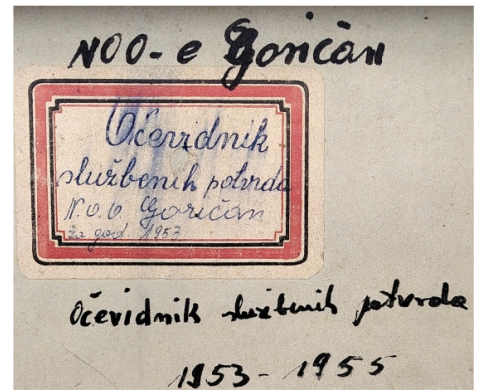 NOO-e Goričan
Očevidnik
službenih potvrda
N.O.O. Goričan
za god. 1953
Očevidnik službenih potvrda
1953 - 1955